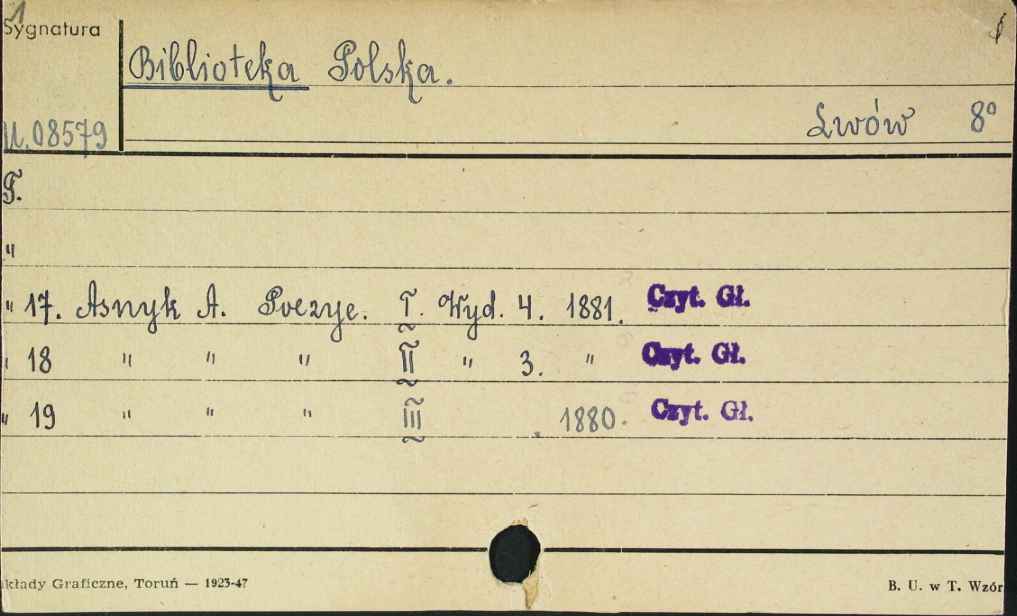 1
Sygnatura
Biblioteka Polska.
U.08579
Lwów 8°
T.
"
" 17. Asnyk A. Poezye. I. Wyd. 4. 1881. Czyt. Gł.
" 18 " " " II " 3. " Czyt. Gł.
" 19 " " " III 1880. Czyt. Gł.
kłady Graficzne, Toruń — 1923-47
B. U. w T. Wzór